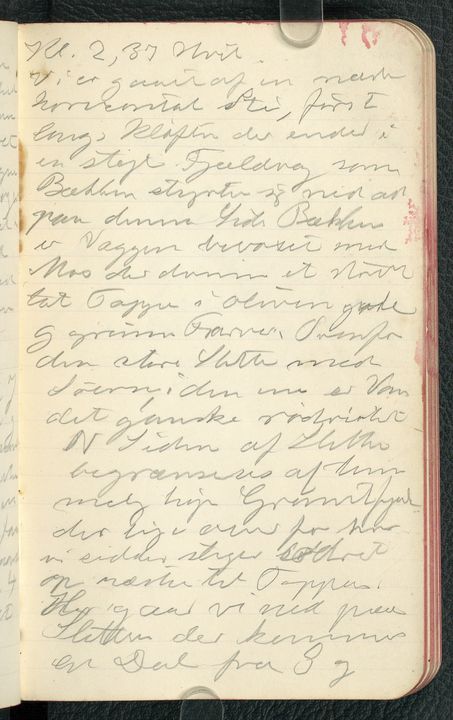 Kl. 2,37 Hvil.
Vi er gaaet af en næsten
horizontal Sti, først
langs Kløften der ender i
en stejl Fjældvæg som
Bækken styrter sig ned ad
paa denne Side Bækken
er Væggen bevoxet med
Mos der danner et stort
tæt Tæppe i oliven gule
og grønne Farver. Ovenfor
den store Slette med
Søerne, i den ene er Van
det ganske rødviolet
N Siden af Sletten
begrænses af
høje Granitfjælde
der lige over for hvor
vi sidder stiger lodret
op næsten til Toppen.
Her gaar vi ned paa
Sletten der kommer
en Dal fra S og